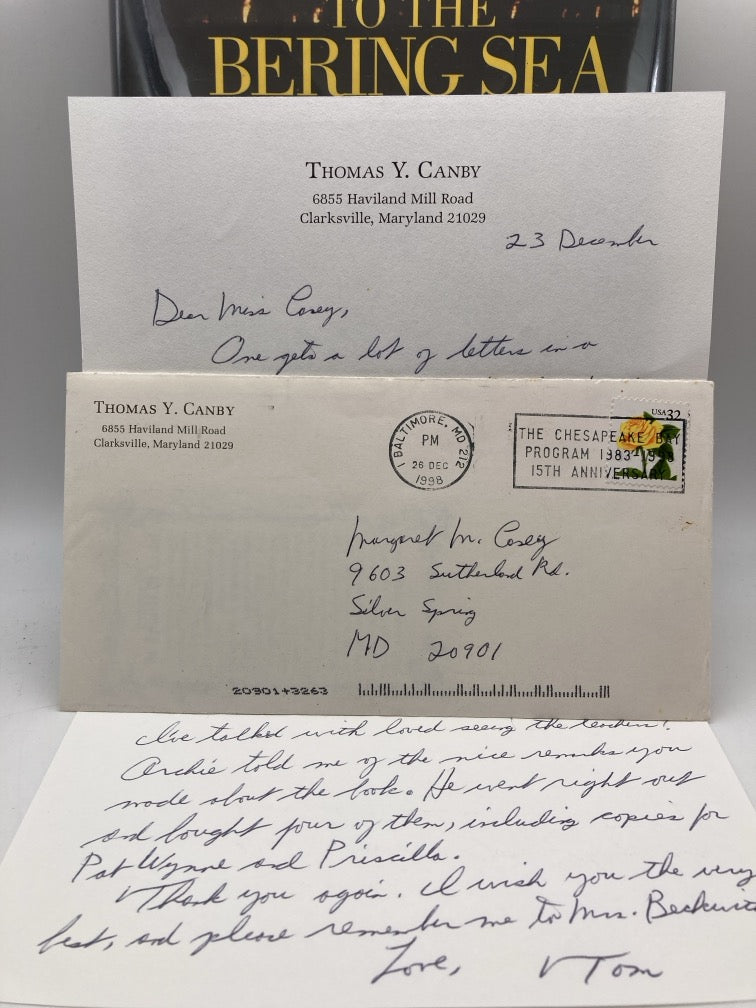 TO THE
BERING SEA
THOMAS Y. CANBY
6855 Haviland Mill Road
Clarksville, Maryland 21029
23 December
Dear Miss Casey,
One gets a lot of letters in a
THOMAS Y. CANBY
6855 Haviland Mill Road
Clarksville, Maryland 21029
BALTIMORE, MD 212
PM
26 DEC
1998
USA 32
THE CHESAPEAKE BAY
PROGRAM 1983-1998
15TH ANNIVERSARY
Margaret M. Casey
9603 Sutherland Rd.
Silver Spring
MD 20901
20901+3263
I've talked with loved seeing the teachers!
Archie told me of the nice remarks you
made about the book. He went right out
and bought four of them, including copies for
Pat Wynne and Priscilla.
Thank you again. I wish you the very
best, and please remember me to Mrs. Beckwit
Love, Tom